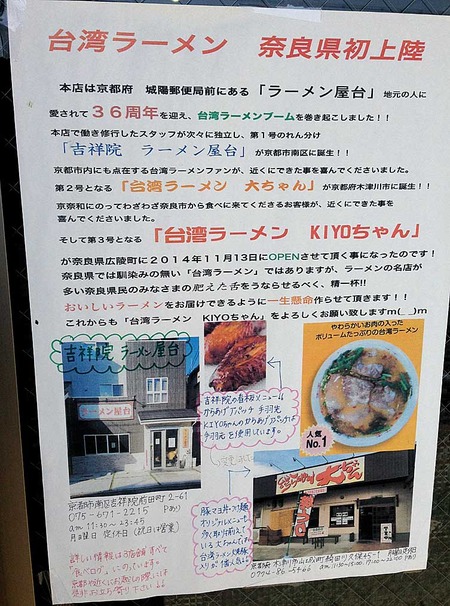 台湾ラーメン　奈良県初上陸
本店は京都府　城陽郵便局前にある「ラーメン屋台」地元の人に
愛されて３６周年を迎え、台湾ラーメンブームを巻き起こしました！！
本店で働き修行したスタッフが次々に独立し、第１号のれん分け
「吉祥院　ラーメン屋台」が京都市南区に誕生！！
京都市内にも点在する台湾ラーメンファンが、近くにできた事を喜んでくださいました。
第２号となる「台湾ラーメン　大ちゃん」が京都府木津川市に誕生！！
京奈和にのってわざわざ奈良市から食べに来てくださるお客様が、近くにできた事を
喜んでくださいました。
そして第３号となる「台湾ラーメン　KIYOちゃん」
が奈良県広陵町に２０１４年１１月１３日にOPENさせて頂く事になったのです！
奈良県では馴染みの無い「台湾ラーメン」ではありますが、ラーメンの名店が
多い奈良県民のみなさまの肥えた舌をうならせるべく、精一杯!!
おいしいラーメンをお届けできるように一生懸命作らせて頂きます！！
これからも「台湾ラーメン　KIYOちゃん」をよろしくお願い致しますm(_ _)m
吉祥院 ラーメン屋台
ラーメン屋台
やわらかいお肉の入った
ボリュームたっぷりの台湾ラーメン
人気
No.1
吉祥院の看板メニュー
からあげアパッチ 手羽先
KIYOちゃんのからあげアパッチは
手羽元を使用しています。
京都市南区吉祥院前田町2-61
075-671-2215 Pあり
am 11:30～23:45
月曜日 定休日(祝日は営業)
詳しい情報は各店舗すべて
「食べログ」にのっています。
京都の近くにお越しの際には
是非お立ち寄り下さい
豚マヨ丼・つけ麺
オリジナルメニューも
台湾ラーメン
大ちゃん
月曜日定休日
京都府 木津川市山城町
0774-86-5466 am 11:30-15:00 17:00-22:00 Pあり